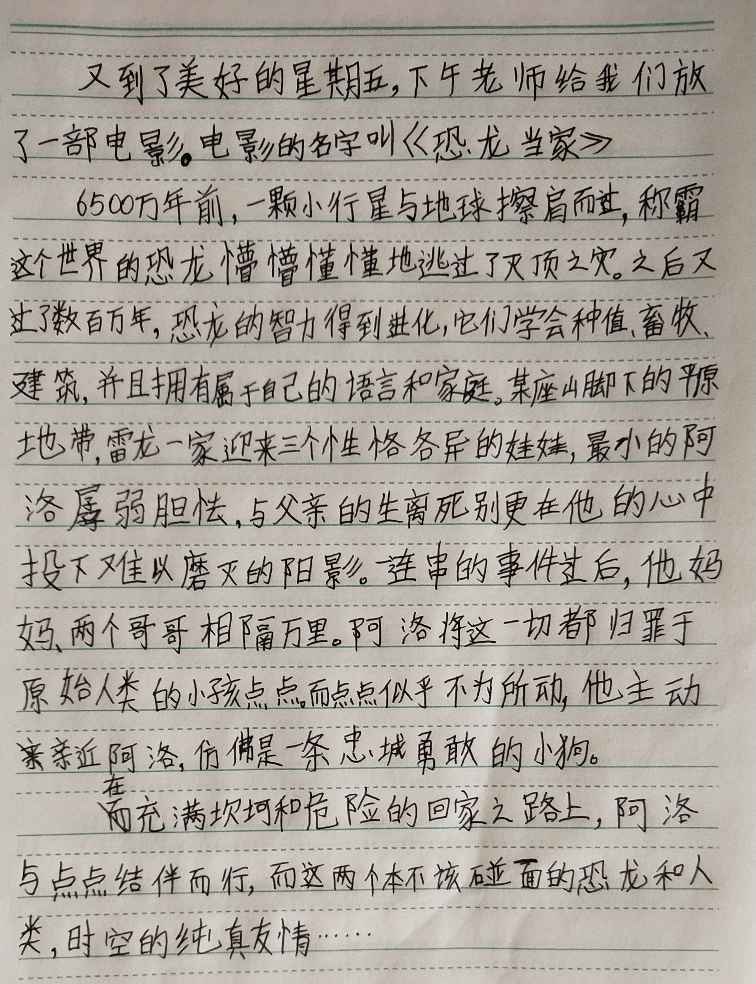 又到了美好的星期五,下午老师给我们放
了一部电影。电影的名字叫《恐龙当家》
6500万年前,一颗小行星与地球擦肩而过,称霸
这个世界的恐龙懵懵懂懂地逃过了灭顶之灾。之后又
过了数百万年,恐龙的智力得到进化,它们学会种值、畜牧、
建筑,并且拥有属于自己的语言和家庭。某座山脚下的平原
地带,雷龙一家迎来三个性格各异的娃娃,最小的阿
洛孱弱胆怯,与父亲的生离死别更在他的心中
投下难以磨灭的阳影。一连串的事件过后,他妈
妈、两个哥哥相隔万里。阿洛将这一切都归罪于
原始人类的小孩点点。而点点似乎不为所动,他主动
亲近阿洛,仿佛是一条忠城勇敢的小狗。
在而充满坎坷和危险的回家之路上,阿洛
与点点结伴而行,而这两个本不该碰面的恐龙和人
类,时空的纯真友情……